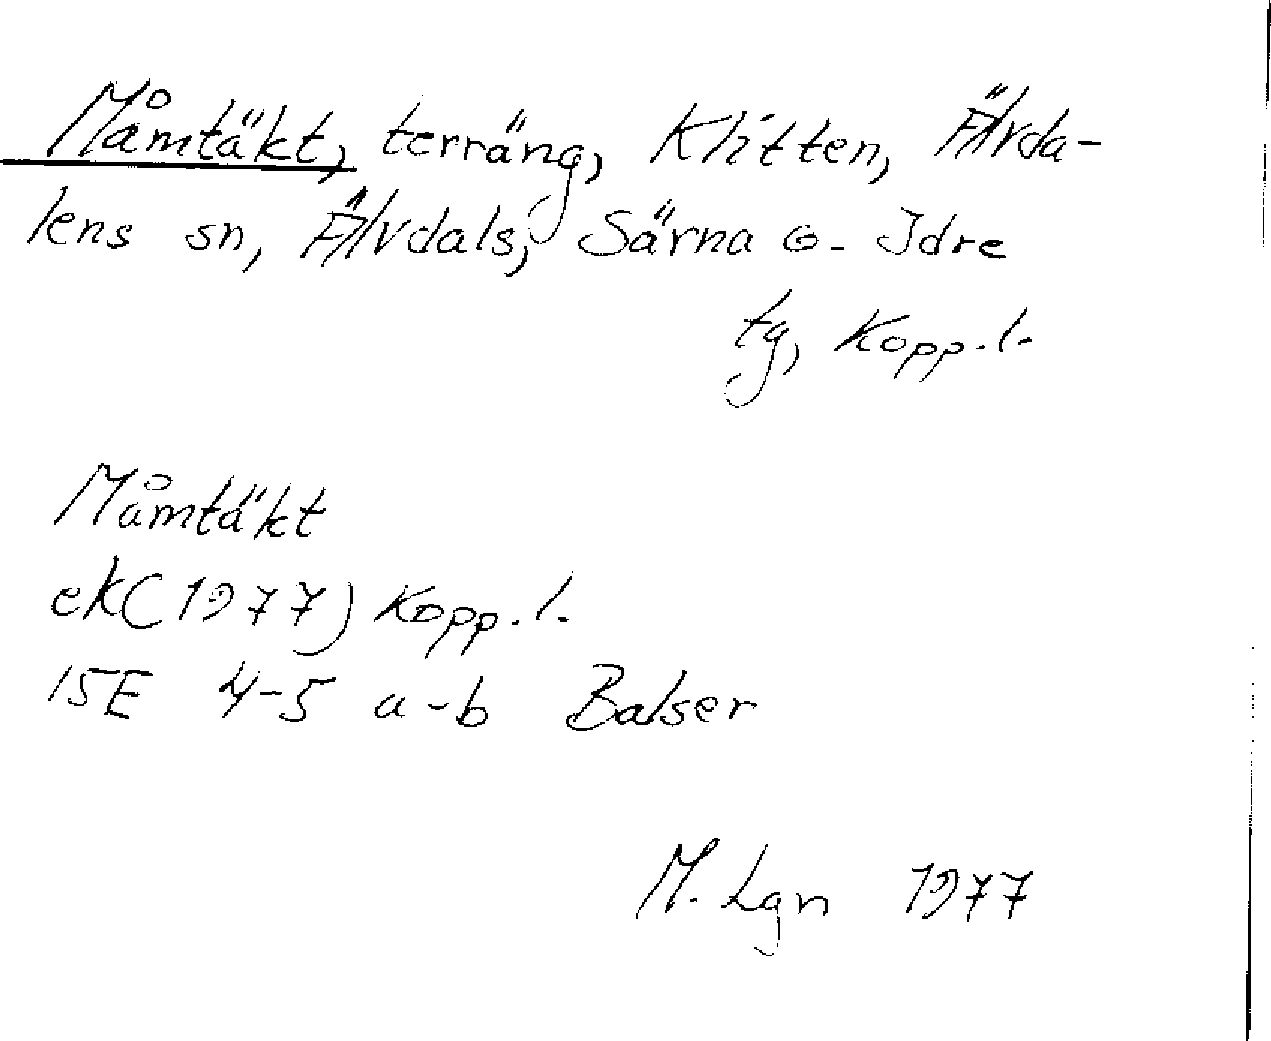 Måmtäkt, terräng, Klitten, Älvda-
lens sn, Älvdals, Särna o. Idre
tg, Kopp.l.
Måmtäkt
ek (1977) Kopp.l.
15E 4-5 a-b Balser
M. Lgn 1977